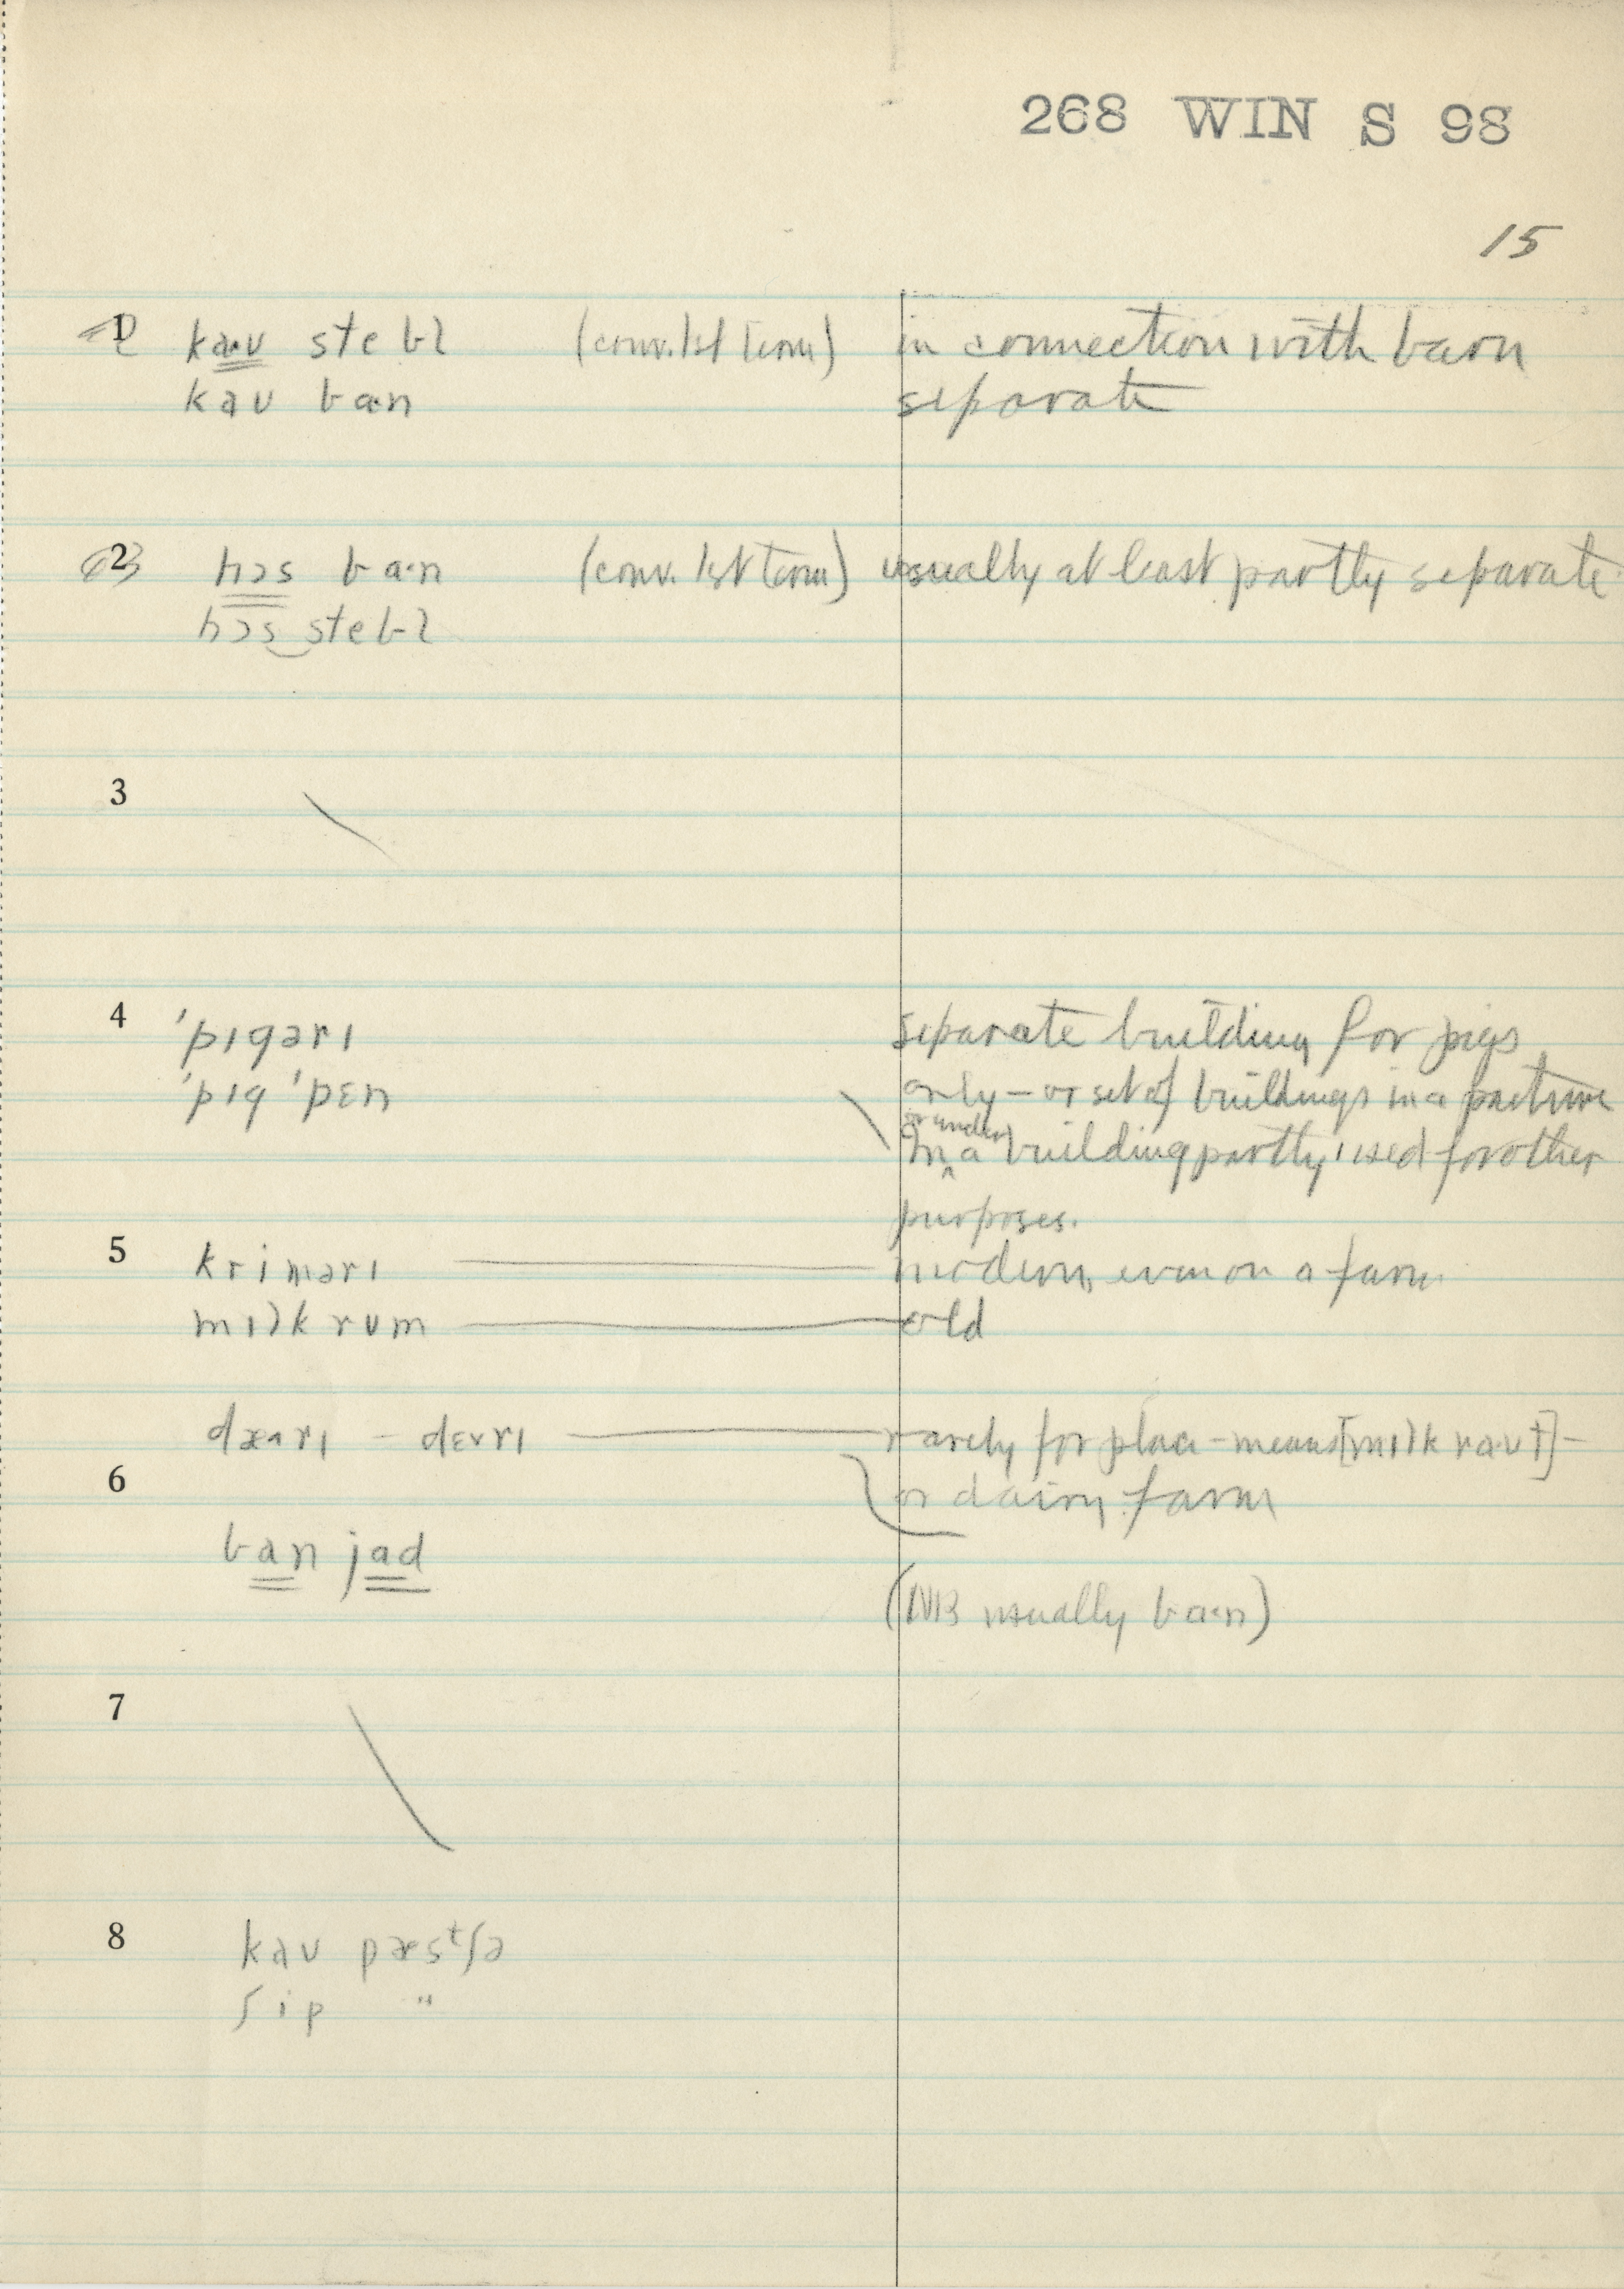 268 WIN S 98
15
1 kaʊ stebl (conv. 1st term) in connection with barn
kaʊ ban separate
2 hɔs ba·n (conv. 1st term) usually at least partly separate
hɔs stebl
3
4 ˈpɪgərɪ separate building for pigs
ˈpɪg ˈpɛn only – or set of buildings in a pasture
or under
in a building partly used for other
purposes.
5 krimərɪ modern, even on a farm
mɪlk rum old
dærɪ – dɛrɪ rarely for place – means [mɪlk raʊt] –
6 or dairy farm
ban jad
(NB usually ba·n)
7
8 kaʊ pæsᵗʃə
ʃip "